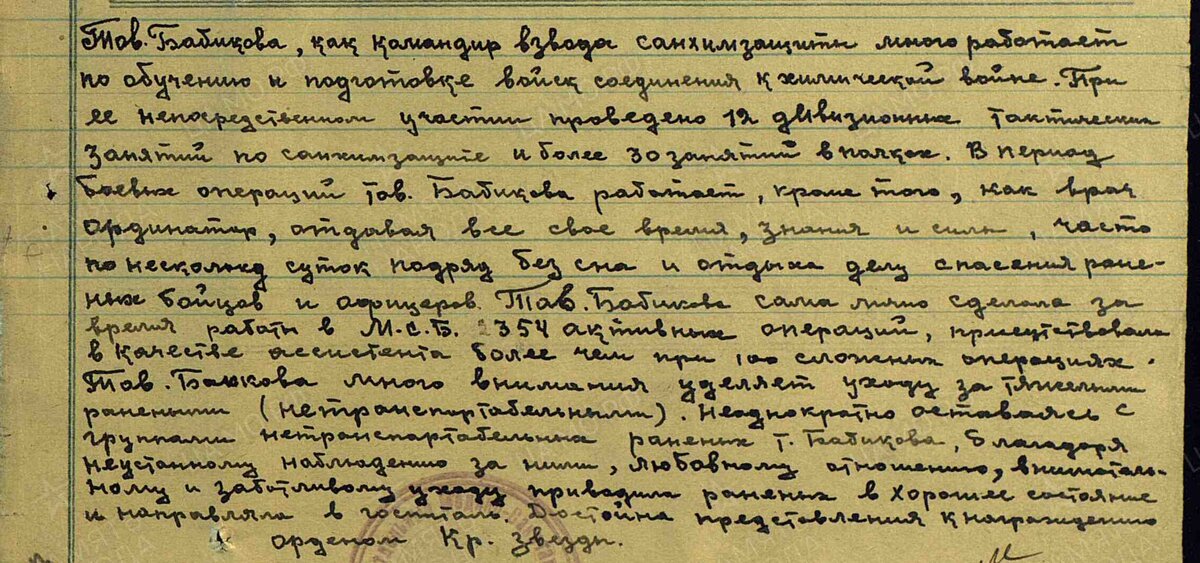 Тов. Бабикова, как командир взвода санхимзащиты много работает
по обучению и подготовке войск соединения к химической войне. При
ее непосредственном участии проведено 12 дивизионных тактических
занятий по санхимзащите и более 30 занятий в полках. В период
боевых операций тов. Бабикова работает, кроме того, как врач
ординатор, отдавая все свое время, знания и силы, часто
по несколько суток подряд без сна и отдыха делу спасения ране-
ных бойцов и офицеров. Тов. Бабикова сама лично сделала за
время работы в М.С.Б. 1354 активных операций, присутствовала
в качестве ассистента более чем при 100 сложных операциях.
Тов. Бабкова много внимания уделяет уходу за тяжелыми
ранеными (нетранспортабельными). Неоднократно оставаясь с
группами нетранспортабельных раненых т. Бабикова, благодоря
неустанному наблюдению за ними, любовному отношению, вниматель-
ному и заботливому уходу приводила раненых в хорошее состояние
и направляла в госпиталь. Достойна представления к награждению
орденом Кр. Звезды.